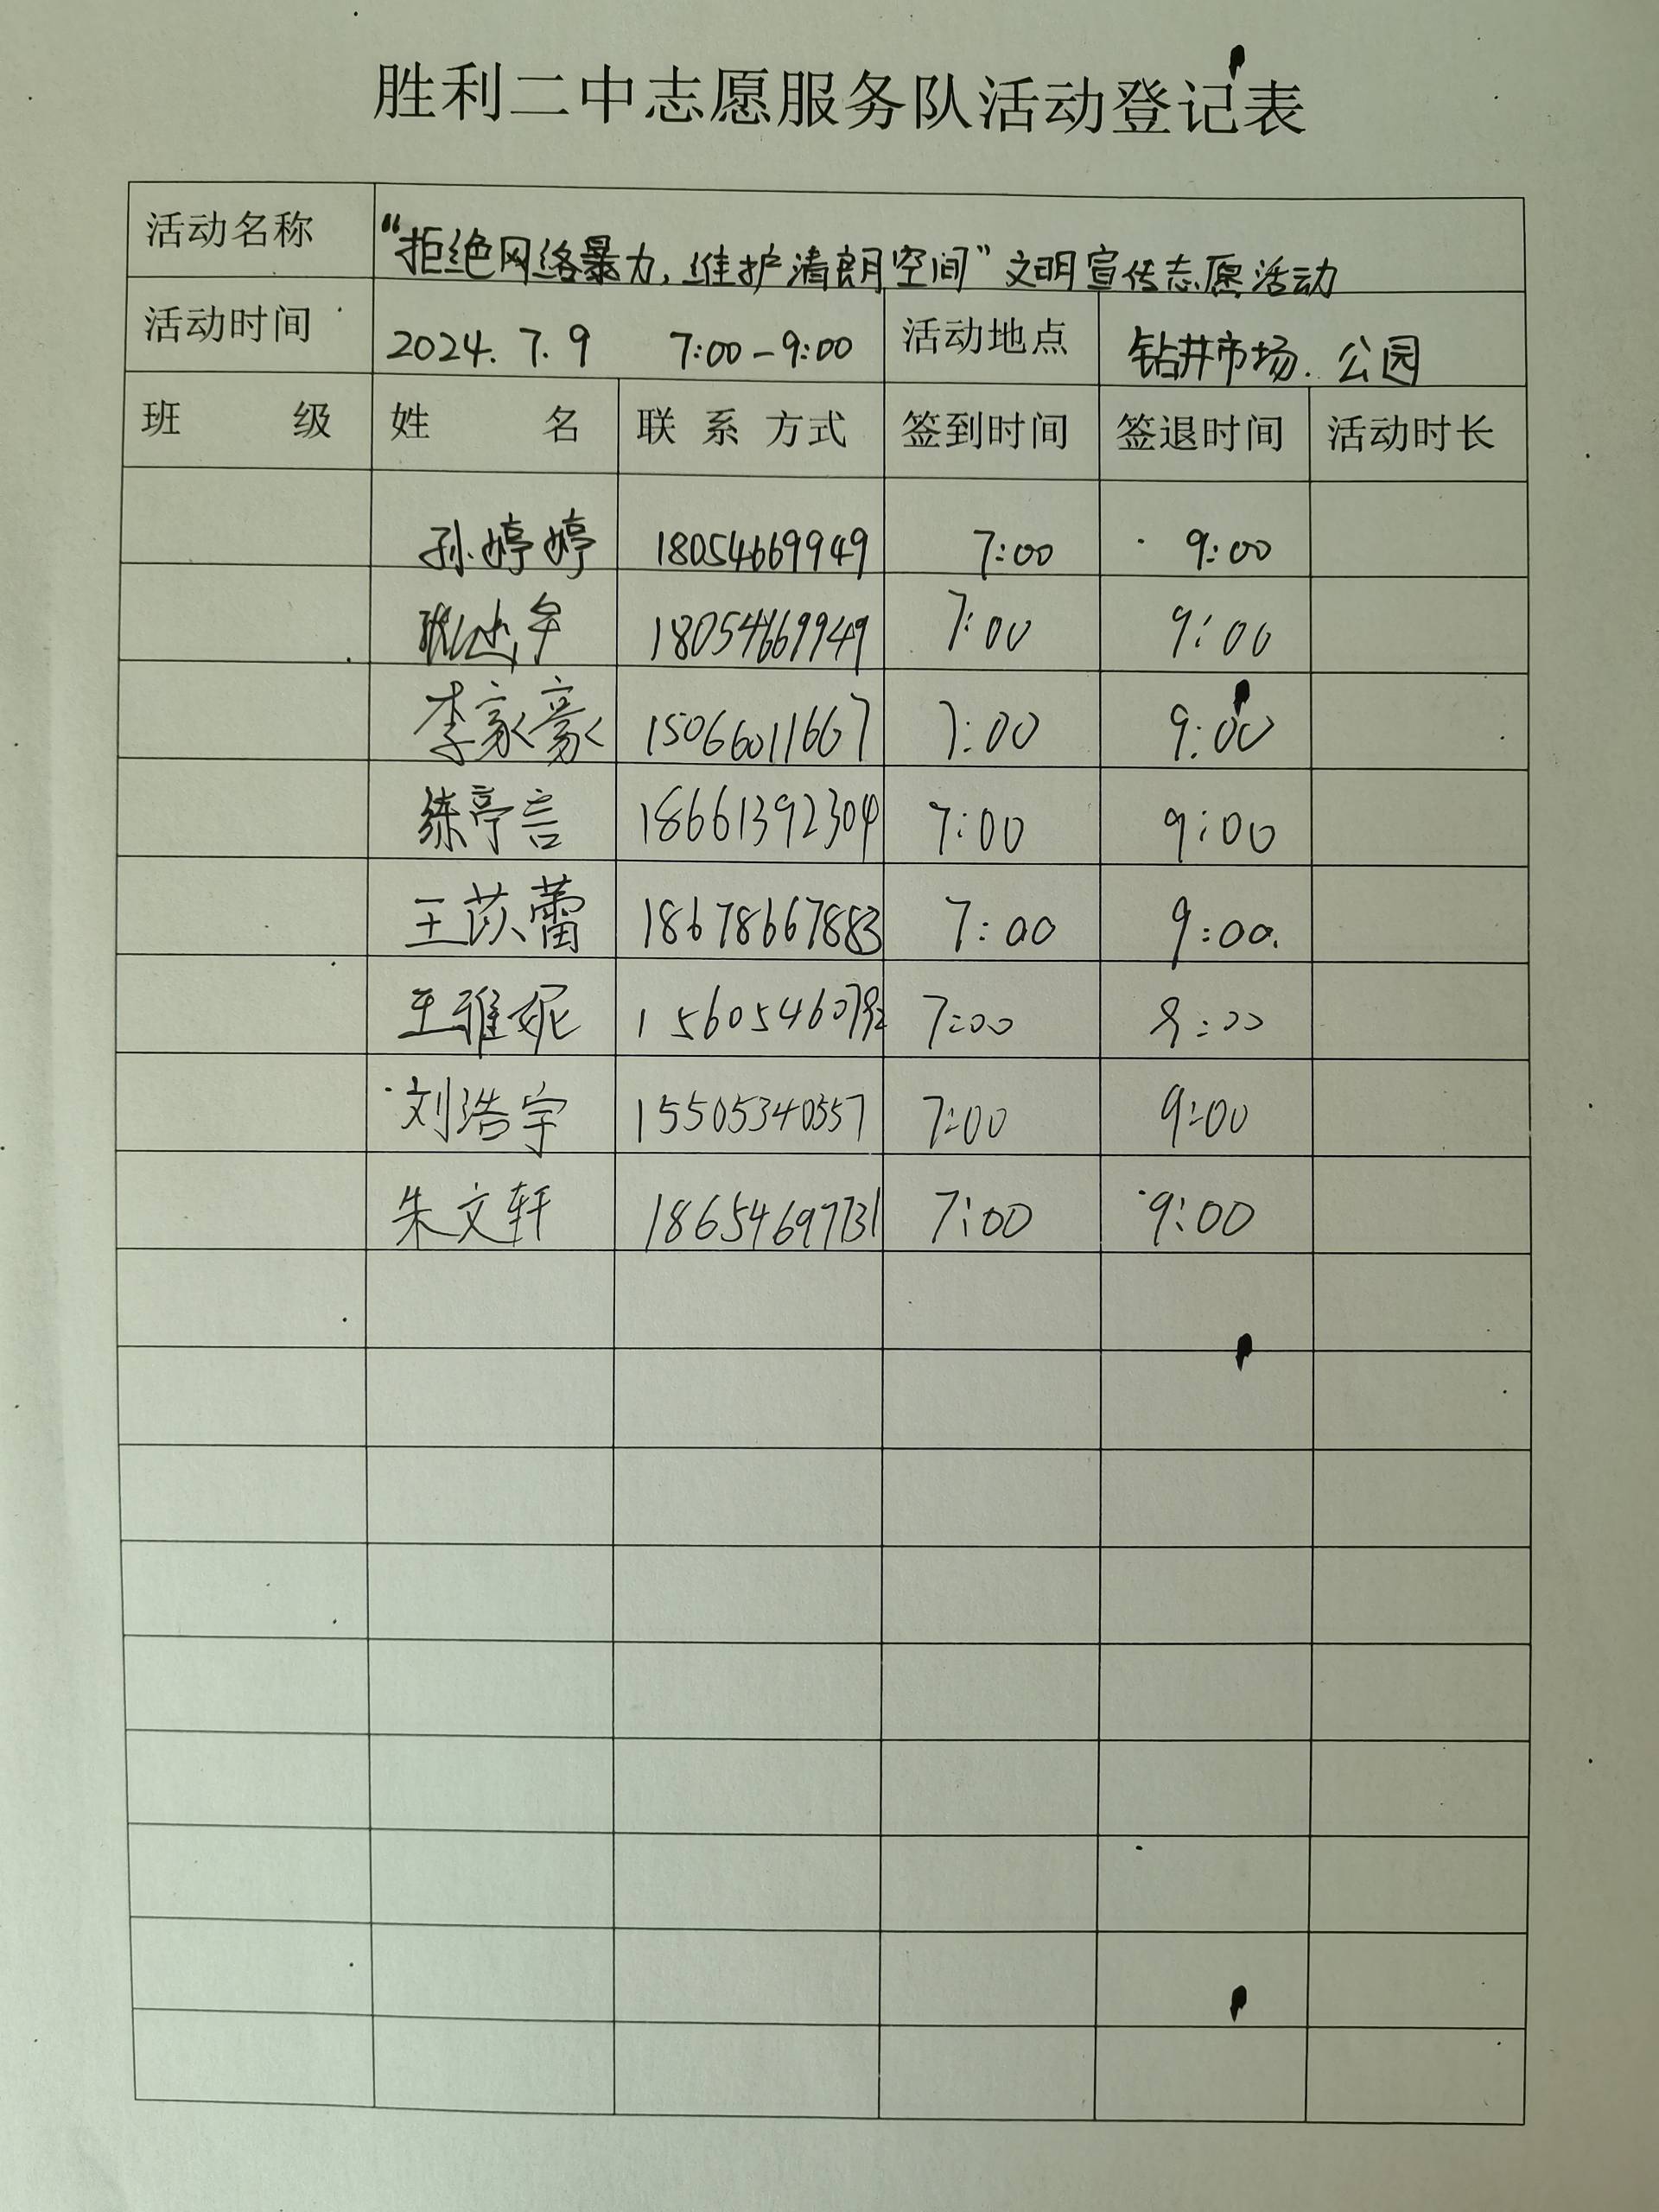 胜利二中志愿服务队活动登记表
活动名称 “拒绝网络暴力,维护清朗空间”文明宣传志愿活动
活动时间 2024.7.9 7:00-9:00 活动地点 钻井市场.公园
班 级 姓 名 联 系 方式 签到时间 签退时间 活动时长
孙婷婷 18054669949 7:00 9:00
18054669949 7:00 9:00
李家豪 15066011667 7:00 9:00
练亭言 18661392304 7:00 9:00
王苡蕾 18678667883 7:00 9:00.
王雅妮 7:00 9:00
刘浩宇 15505340557 7:00 9:00
朱文轩 18654697131 7:00 9:00